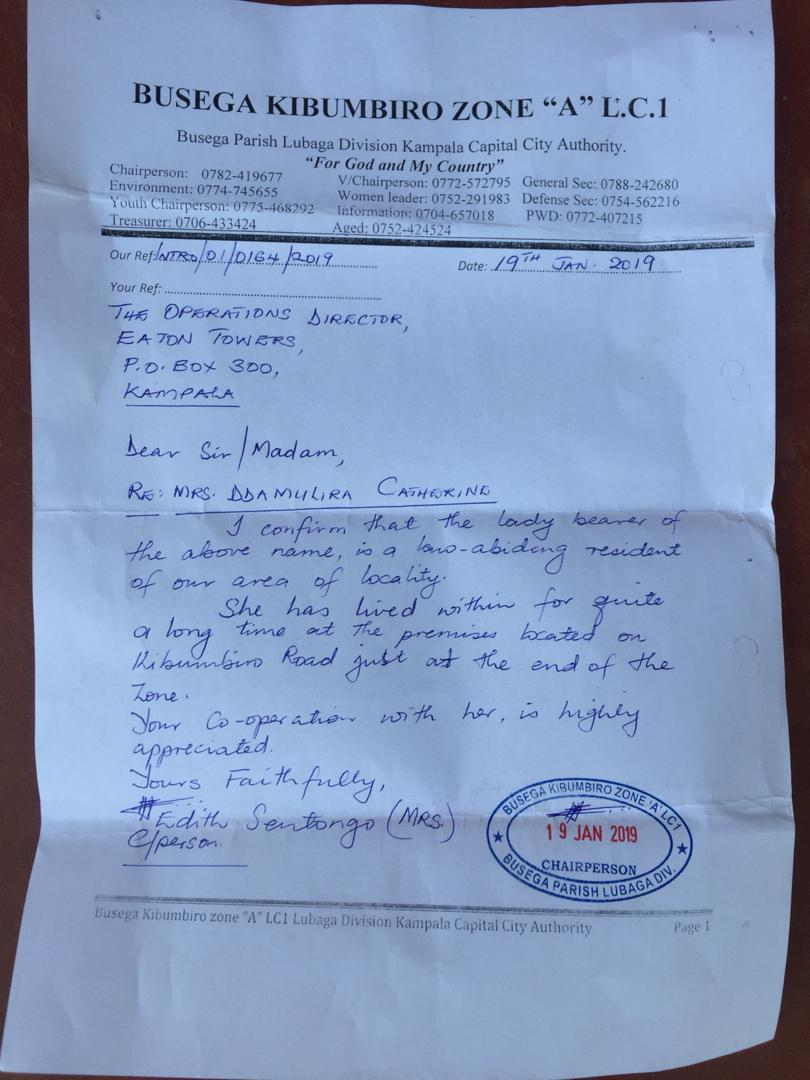 BUSEGA KIBUMBIRO ZONE “A” L.C.1
Busega Parish Lubaga Division Kampala Capital City Authority.
“For God and My Country”
Chairperson: 0782-419677 V/Chairperson: 0772-572795 General Sec: 0788-242680
Environment: 0774-745655 Women leader: 0752-291983 Defense Sec: 0754-562216
Youth Chairperson: 0775-468292 Information: 0704-657018 PWD: 0772-407215
Treasurer: 0706-433424 Aged: 0752-424524
Our Ref: INTRO/01/0164/2019 Date: 19TH JAN. 2019
Your Ref:
THE OPERATIONS DIRECTOR,
EATON TOWERS,
P.O. BOX 300,
KAMPALA
Dear Sir/Madam,
RE: MRS. DDAMULIRA CATHERINE
I confirm that the lady bearer of
the above name, is a law-abiding resident
of our area of locality.
She has lived within for quite
a long time at the premises located on
Kibumbiro Road just at the end of the
Zone.
Your Co-operation with her, is highly
appreciated.
Yours Faithfully,
Edith Sentongo (MRS.)
C/person.
BUSEGA KIBUMBIRO ZONE 'A' LC1
19 JAN 2019
CHAIRPERSON
BUSEGA PARISH LUBAGA DIV.
Busega Kibumbiro zone “A” LC1 Lubaga Division Kampala Capital City Authority Page 1